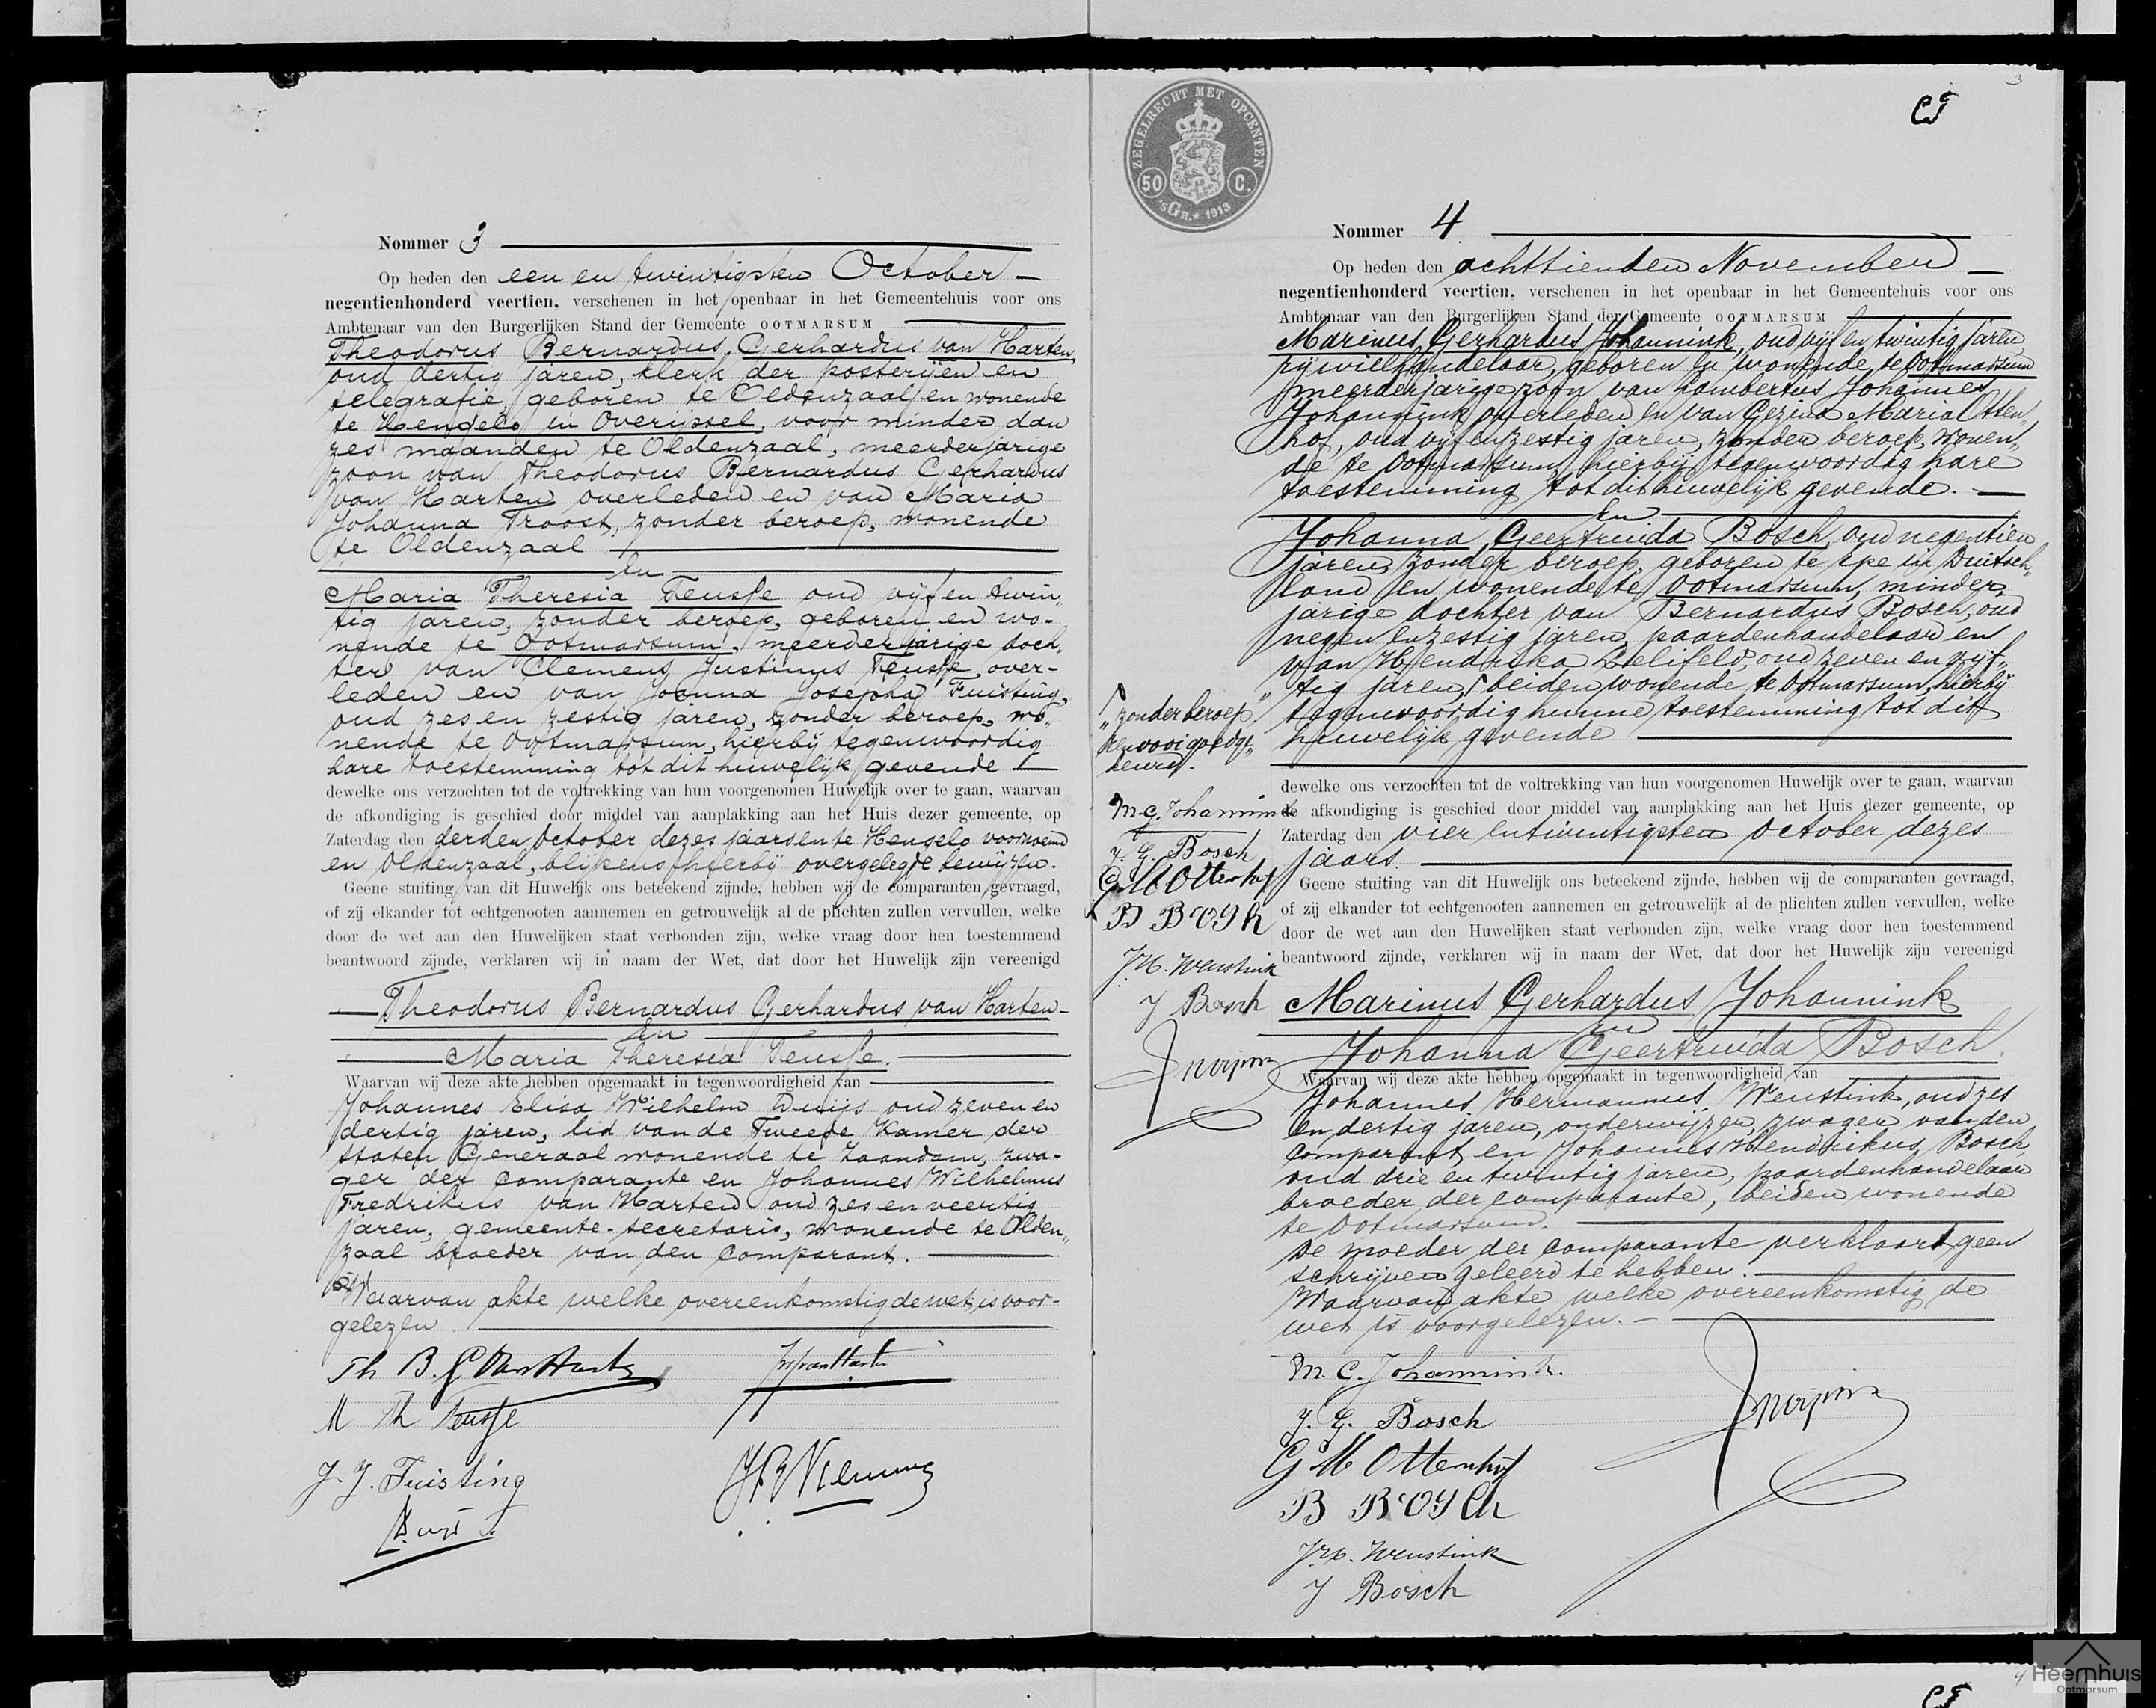 Nommer 3
Op heden den een en twintigsten October
negentienhonderd veertien, verschenen in het openbaar in het Gemeentehuis voor ons
Ambtenaar van den Burgerlijken Stand der Gemeente OOTMARSUM
Theodorus Bernardus Gerhardus van Harten,
oud dertig jaren, klerk der posterijen en
telegrafie, geboren te Oldenzaal en wonende
te Hengelo in Overijssel, voor minder dan
zes maanden te Oldenzaal, meerderjarige
zoon van Theodorus Bernardus Gerhardus
van Harten overleden en van Maria
Johanna Troost, zonder beroep, wonende
te Oldenzaal
En
Maria Theresia Teusse oud vijf en twin„
tig jaren, zonder beroep, geboren en wo-
nende te Ootmarsum, meerderjarige doch„
ter van Clemens Justinus Teusse, over-
leden en van Joanna Josepha Fuisting,
oud zes en zestig jaren, zonder beroep, wo„
nende te Ootmarsum, hierbij tegenwoordig
hare toestemming tot dit huwelijk gevende
dewelke ons verzochten tot de voltrekking van hun voorgenomen Huwelijk over te gaan, waarvan
de afkondiging is geschied door middel van aanplakking aan het Huis dezer gemeente, op
Zaterdag den derden October dezes jaars en te Hengelo voornoemd
en Oldenzaal, blijkens hierbij overgelegde bewijzen.
Geene stuiting van dit Huwelijk ons beteekend zijnde, hebben wij de comparanten gevraagd,
of zij elkander tot echtgenooten aannemen en getrouwelijk al de plichten zullen vervullen, welke
door de wet aan den Huwelijken staat verbonden zijn, welke vraag door hen toestemmend
beantwoord zijnde, verklaren wij in naam der Wet, dat door het Huwelijk zijn vereenigd
Theodorus Bernardus Gerhardus van Harten
En
Maria Theresia Teusse.
Waarvan wij deze akte hebben opgemaakt in tegenwoordigheid van
Johannes Elisa Wilhelm Duijs oud zeven en
dertig jaren, lid van de Tweede Kamer der
Staten Generaal wonende te Zaandam, zwa-
ger der comparante en Johannes Wilhelmus
Fredrikus van Harten oud zes en veertig
jaren, gemeente-secretaris, wonende te Olden„
zaal broeder van den comparant.
Waarvan akte welke overeenkomstig de wet is voor-
gelezen
Th B. G van Harten
M Th Teusse
J. J. Fuisting
Duys
ZEGELRECHT MET OPCENTEN
50 C.
'sGR. 1913
3
Nommer 4
Op heden den achttienden November
negentienhonderd veertien, verschenen in het openbaar in het Gemeentehuis voor ons
Ambtenaar van den Burgerlijken Stand der Gemeente OOTMARSUM
Marinus Gerhardus Johannink, oud vijf en twintig jaren,
rijwielhandelaar, geboren en wonende te Ootmarsum
meerderjarige zoon van Lambertus Johannes
Johannink overleden en van Gezina Maria Otten„
hof, oud vijf en zestig jaren, zonder beroep, wonen„
de te Ootmarsum, hierbij tegenwoordig hare
toestemming tot dit huwelijk gevende.
En
Johanna Geertruida Bosch, oud negentien
jaren, zonder beroep, geboren te Epe in Duitsch„
land en wonende te Ootmarsum, minder„
jarige dochter van Bernardus Bosch, oud
negen en zestig jaren, paardenhandelaar en
van Hendrika Lelifeld, oud zeven en vijf„
tig jaren, beiden wonende te Ootmarsum, hierbij
tegenwoordig hunne toestemming tot dit
huwelijk gevende
„zonder beroep"
goedge„
keurd.
M. G. Johannink
J. G. Bosch
G M Ottenhof
B BOSCH
J H. Wenstink
J Bosch
dewelke ons verzochten tot de voltrekking van hun voorgenomen Huwelijk over te gaan, waarvan
de afkondiging is geschied door middel van aanplakking aan het Huis dezer gemeente, op
Zaterdag den vier en twintigsten October dezes
jaars
Geene stuiting van dit Huwelijk ons beteekend zijnde, hebben wij de comparanten gevraagd,
of zij elkander tot echtgenooten aannemen en getrouwelijk al de plichten zullen vervullen, welke
door de wet aan den Huwelijken staat verbonden zijn, welke vraag door hen toestemmend
beantwoord zijnde, verklaren wij in naam der Wet, dat door het Huwelijk zijn vereenigd
Marinus Gerhardus Johannink
En
Johanna Geertruida Bosch.
Waarvan wij deze akte hebben opgemaakt in tegenwoordigheid van
Johannes Hermannus Wenstink, oud zes
en dertig jaren, onderwijzer, zwager van den
comparant en Johannes Hendrikus Bosch
oud drie en twintig jaren, paardenhandelaar
broeder der comparante, beiden wonende
te Ootmarsum.
De moeder der comparante verklaart geen
schrijven geleerd te hebben.
Waarvan akte welke overeenkomstig de
wet is voorgelezen.
M. G. Johannink.
J. G. Bosch
G M Ottenhof
B BOSCH
J H. Wenstink
J Bosch
4
Heemhuis
Ootmarsum